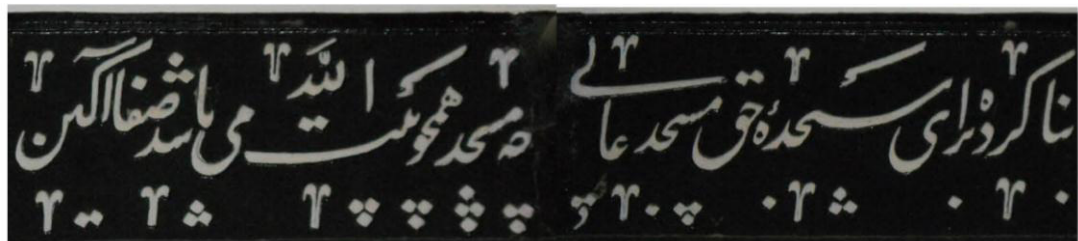 بنا کرده برای سجدهٔ حق مسجد عالی
چه مسجد همچو بیت الله می باشد صفا آگین